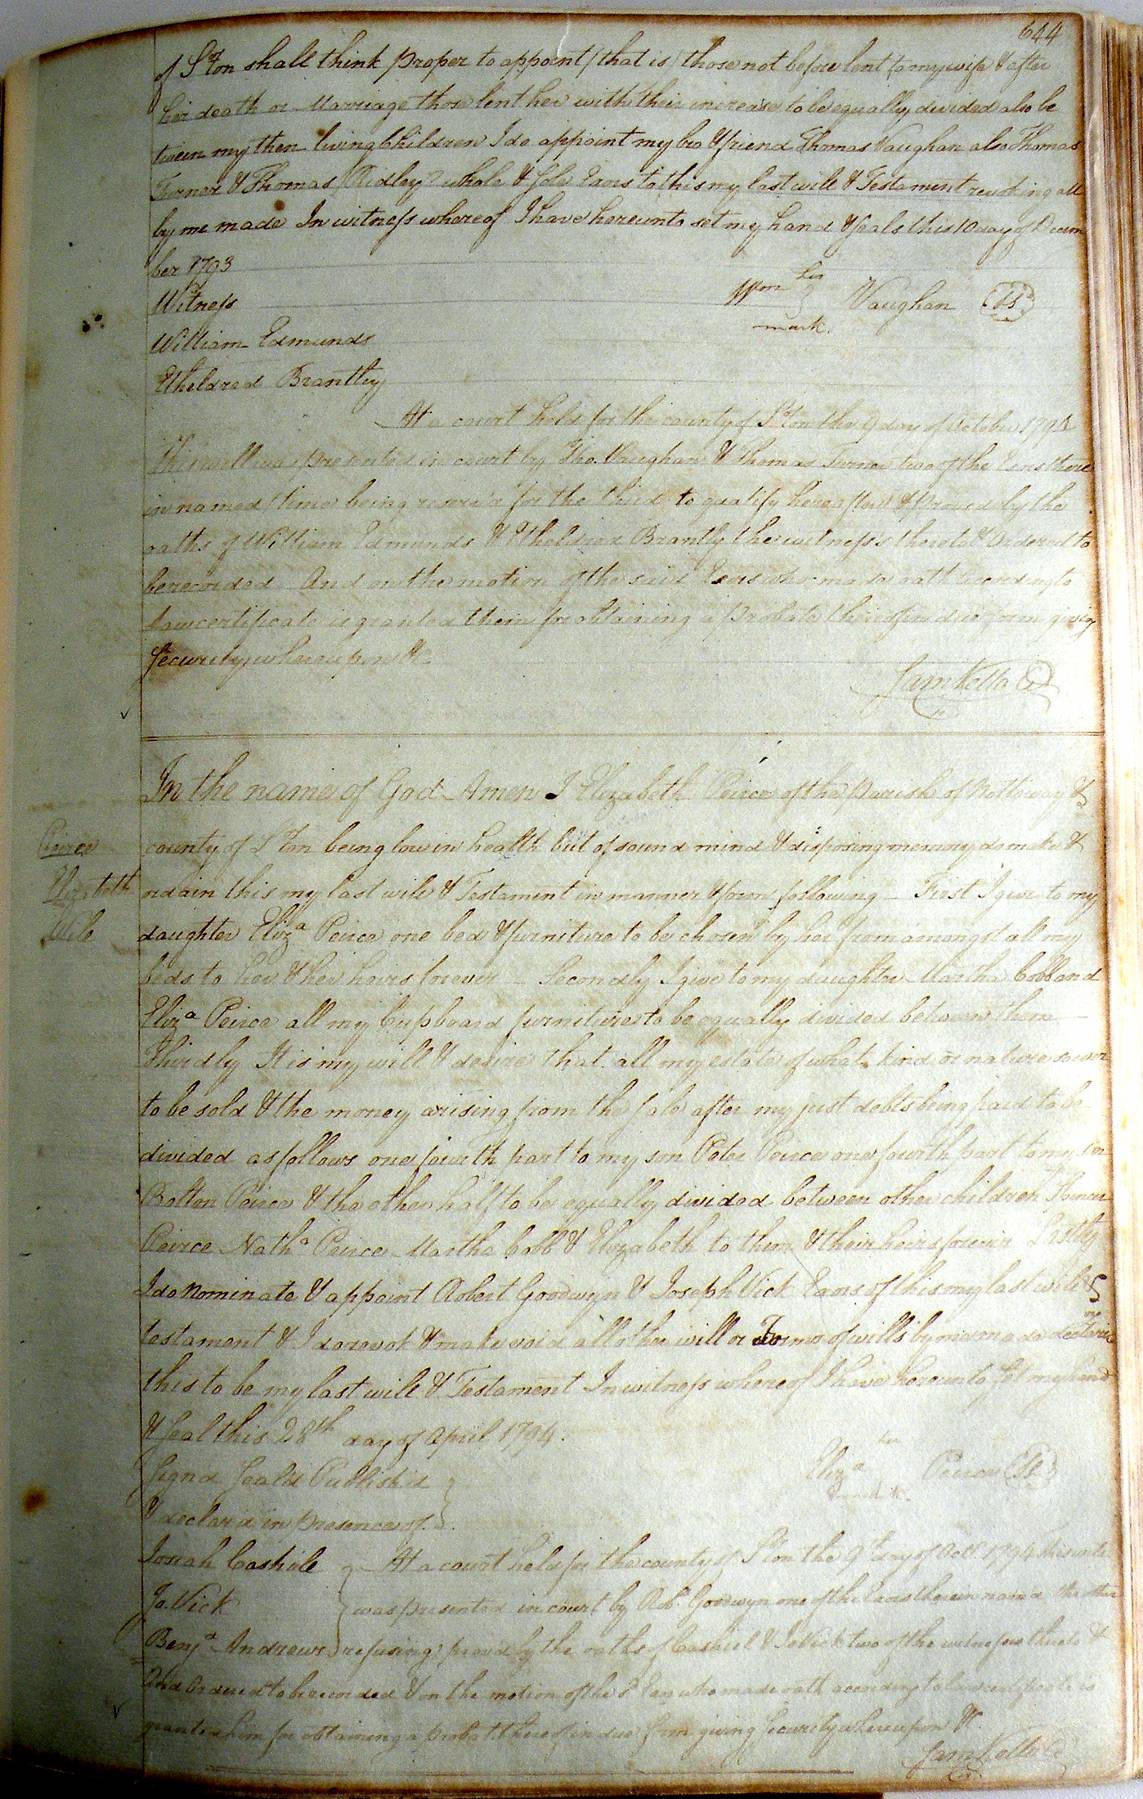 644
of S:ton shall think proper to appoint (that is) those not before lent to my wife & after
her death or Marriage those lent her with their increase to be equally divided also be
tween my then living Children I do appoint my bro & friend Thomas Vaughan also Thomas
Turner & Thomas Ridley whole & sole Exors to this my last will & Testament revoking all
by me made In witness whereof I have hereunto set my hand & seals this 10 day of Decem
ber 1793
Witness
Wm his Vaughan (Ls)
mark.
William Edmunds
Etheldred Brantley
At a court held for the county of S:ton the 9 day of October 1794
This will was presented in court by Tho. Vaughan & Thomas Turner two of the Exors there
in named (time being reserv'd for the third to qualify hereafter) & proved by the
oaths of William Edmunds & Etheldred Brantly the witness's thereto & Ordered to
be recorded And on the motion of the said Exors who made oath according to
Law certificate is granted them for obtaining a probate thereof in due form giving
Security whereupon &c
Sam Kello C
In the name of God Amen I Elizabeth Peirce of the parish of Nottoway &
Peirce
county of S:ton being low in health but of sound mind & disposing memory do make &
Elizabeth
ordain this my last will & Testament in manner & form following First I give to my
Will
daughter Eliza Peirce one bed & furniture to be chosen by her from amongst all my
beds to her & her heirs forever Secondly I give to my daughter Martha Cobb and
Eliza Peirce all my Cupboard furniture to be equally divided between them
Thirdly It is my will & desire that all my estate of what kind or nature soever
to be sold & the money arising from the sale after my just debts being paid to be
divided as follows one fourth part to my son Peter Peirce one fourth part to my son
Bolton Peirce & the other half to be equally divided between other children
Peirce Natha Peirce Martha Cobb & Elizabeth to them & their heirs forever Lastly
I do nominate & appoint Robert Goodwyn & Joseph Vick Exors of this my last will &
testament & I do revok & make void all other will or Forms of wills by me made
this to be my last will & Testament In witness whereof I have hereunto set my hand
& seal this 28th day of April 1794.
Sign'd Seal'd Publish'd
Eliza her Peirce (Ls)
mark
& declar'd in presence of
Josiah Cashiele
At a court held for the county of S:ton the 9th day of Octr 1794 this will
Jo. Vick
was presented in court by Robt Goodwyn one of the Exors therein named the other
Benja Andrews
refusing prov'd by the oaths of Cashiel & Jo Vick two of the witnesses thereto &
And Ordered to be recorded & on the motion of the sd Exor who made oath according to law certificate is
granted him for obtaining a probate thereof in due form giving Security whereupon &c.
Sam Kello C